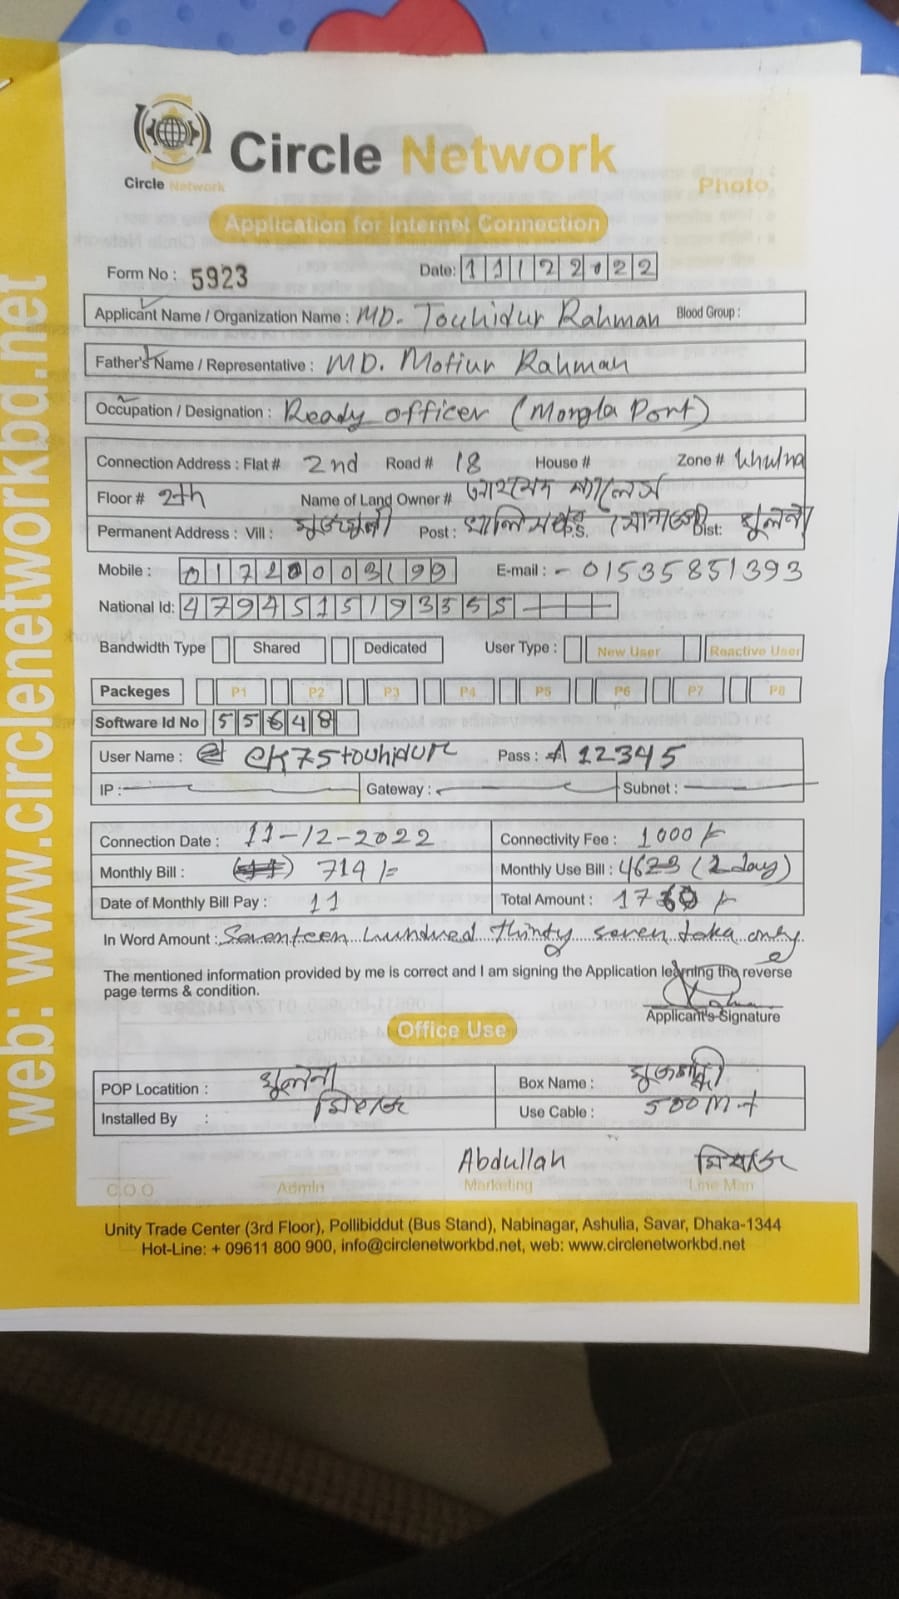 Circle Network
Circle Network
Photo
Application for Internet Connection
Form No : 5923 Date: 11122022
Applicant Name / Organization Name : MD. Touhidur Rahman Blood Group :
Father's Name / Representative : MD. Motiur Rahman
Occupation / Designation : Ready officer (Mongla Port)
Connection Address : Flat # 2nd Road # 18 House # Zone # khulna
Floor # 2th Name of Land Owner #
Permanent Address : Vill : Post : P.S. Dist: খুলনা
Mobile : E-mail : - 01535851393
National Id:
Bandwidth Type Shared Dedicated User Type : New User Reactive User
Packeges P1 P2 P3 P4 P5 P6 P7 P8
Software Id No 55648
User Name : Pass : 12345
IP : Gateway : Subnet :
Connection Date : 11-12-2022 Connectivity Fee : 1000/-
Monthly Bill : 714/= Monthly Use Bill :
Date of Monthly Bill Pay : 11 Total Amount :
In Word Amount : Seventeen hundred thirty seven taka only
The mentioned information provided by me is correct and I am signing the Application learning the reverse
page terms & condition.
Applicant's Signature
Office Use
POP Locatition : খুলনা Box Name :
Installed By : Use Cable :
Abdullah
C.O.O Admin Marketing Line Man
Unity Trade Center (3rd Floor), Pollibiddut (Bus Stand), Nabinagar, Ashulia, Savar, Dhaka-1344
Hot-Line: + 09611 800 900, info@circlenetworkbd.net, web: www.circlenetworkbd.net
web: www.circlenetworkbd.net